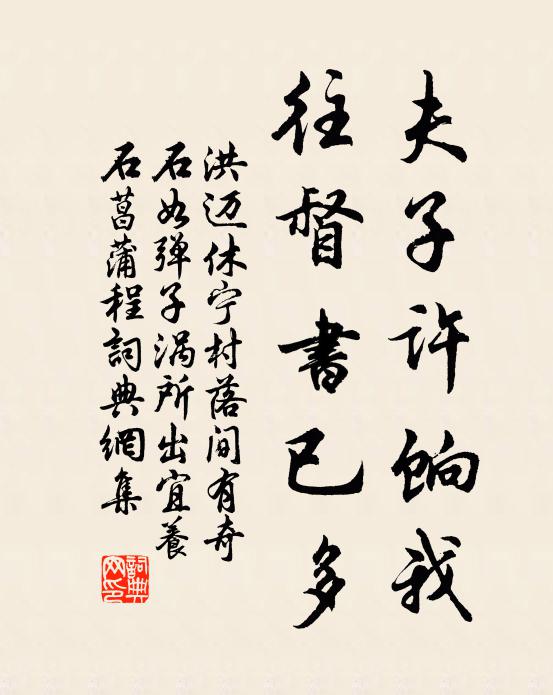 夫子许饷我
往督書已多
洪迈休宁村落间有奇
石如弹子涡所出宜養
石菖蒲程詞典網集
詞典
网印